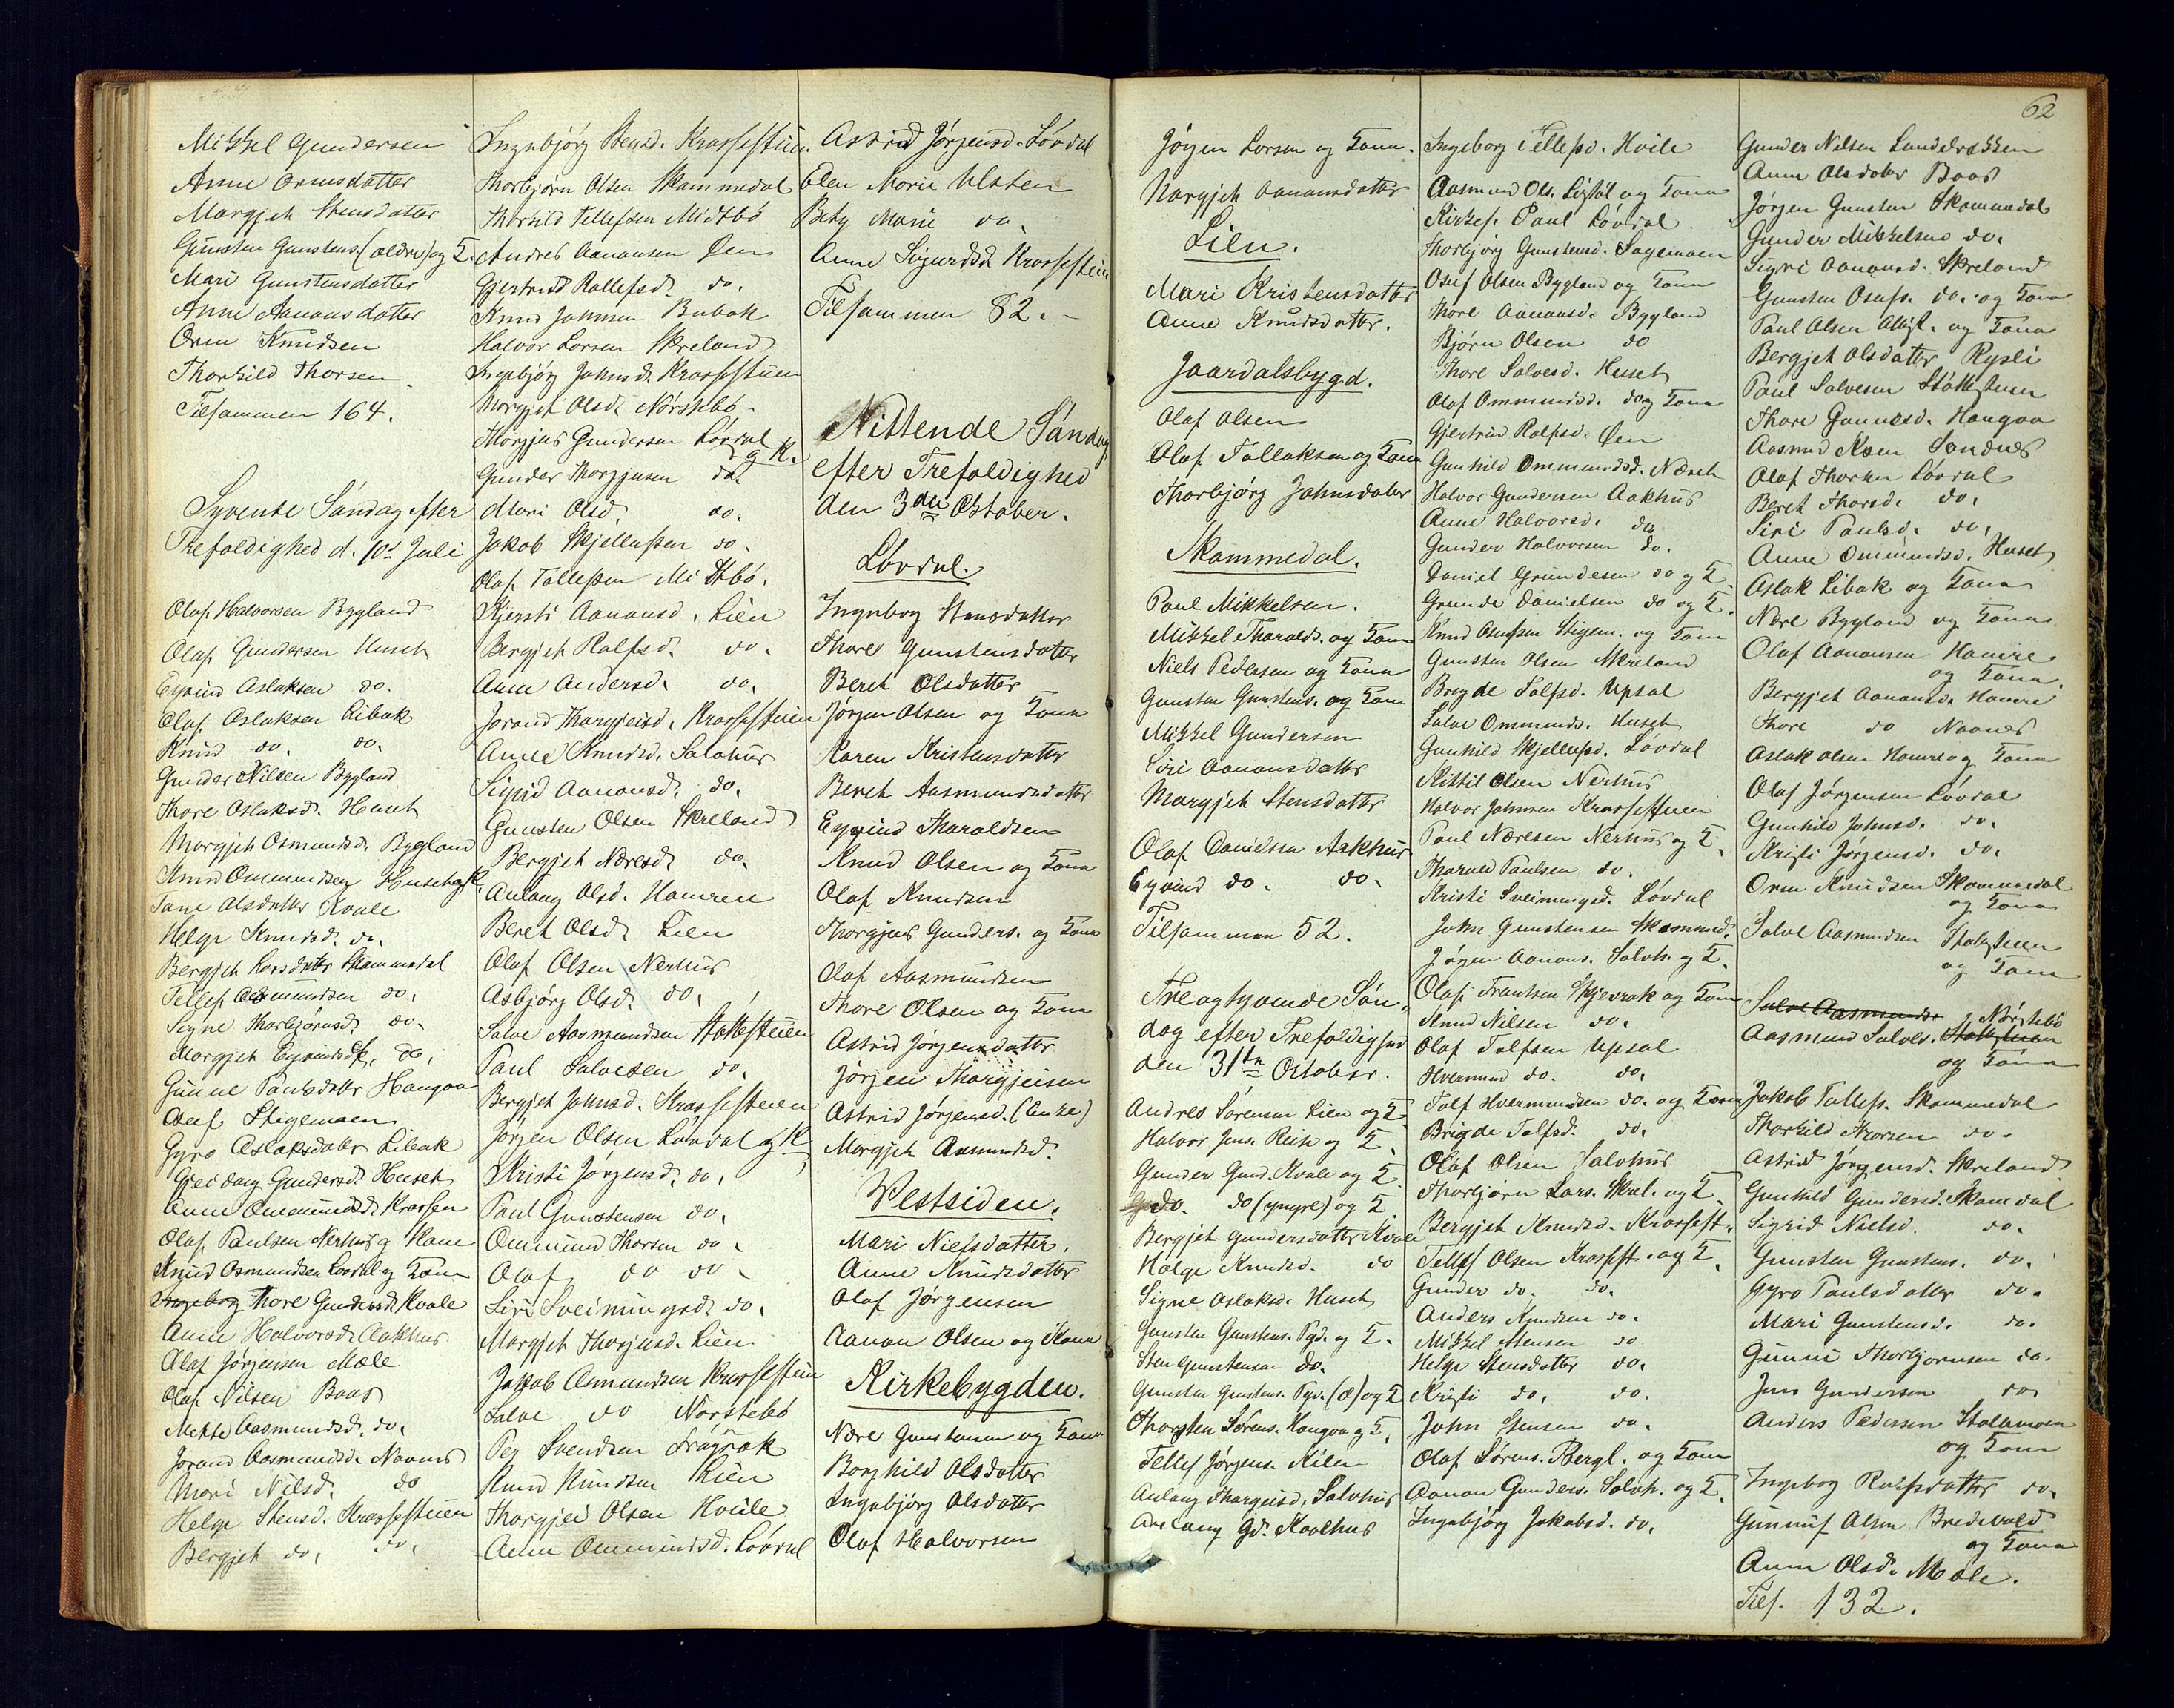 Mikkel Gundersen
Anne Ormsdatter
Margjet Stensdatter
Gunsten Gunstens. (ældre) og K.
Mari Gunstensdatter
Anne Aanonsdatter
Orm Knudsen
Thorkild Thorsen
Tilsammen 164.
Syvende Søndag efter
Trefoldighed d. 10d Juli
Olaf Halvorsen Bygland
Olaf Gundersen Huset
Eyvind Aslaksen do.
Olaf Aslaksen Libak
Knud do. do.
Gunder Nilsen Bygland
Thore Aslaksd. Huset
Margjet Osmundsd. Bygland
Knud Ommundsen Huset og K.
Tane Olsdatter Kvale
Helge Knudsd. do.
Bergjet Larsdatter Skammedal
Tellef Aasmundsen do.
Signe Thorbjørnsd. do.
Margjet Eyvindsd. do.
Gunne Paulsdatter Haugaa
Osuf Stigemoen
Gyro Aslaksdatter Libak
Gjeidang Gundersd. Huset
Anne Ommundsd. Krossen
Olaf Paulsen Nerhus og Kone
Knud Osmundsen Løvdal og Kone
Ingeborg Thore Gundersd. Kvale
Anne Halvorsd. Aakhus
Olaf Jørgensen Mæle
Olaf Nilsen Baas
Mekte Aasmundsd. do.
Jorand Aasmundsd. Naones
Mari Nilsd. do
Helge Stensd. Krossestuen
Bergjet do. do.
Ingebjørg Stensd. Krossestuen.
Thorbjørn Olsen Skammedal
Thorkild Tellefsen Midtbø
Andres Aanonsen Øen
Gjertrud Rollefsd. do.
Knud Johnsen Bubak
Halvor Larsen Skreland
Ingebjørg Johnsd. Krossestuen
Margjet Olsd. Nørstebø
Thorgjus Gundersen Løvdal og K.
Gunder Thorgjusen do.
Mari Olsd. do.
Jakob Kjellefsen do.
Olaf Tallefsen Midtbø.
Kjersti Aanonsd. Lien
Bergjet Rolfsd. do.
Anne Andersd. do.
Jorand Thorgjeisd. Krossestuen
Anne Knudsd. Salohus
Sigrid Aanonsd. do.
Gunsten Olsen Skreland
Bergjet Næresd. do.
Anlaug Olsd. Hamren
Beret Olsd. Lien
Olaf Olsen Nerhus
Asbjørg Olsd. do.
Salve Aasmundsen Stattestuen
Paul Salvesen do.
Bergjet Johnsd. Krossestuen
Jørgen Olsen Løvdal og K.
Kristi Jørgensd. do.
Paul Gunstensen do.
Ommund Thorsen do.
Olaf do do.
Siri Sveinungsd. do.
Margjet Thorgjusd. Lien
Jakob Osmundsen Krossestuen
Salve do Nørstebø
Per Svendsen
Knud Knudsen Lien
Thorgjei Olsen Hvile
Anne Ommundsd. Løvdal
Astrid Jørgensd. Løvdal
Elen Marie Ulsten
Bety Marie do.
Anne Sigurdsd. Krossestuen
Tilsammen 82.
Nittende Søndag
efter Trefoldighed
den 3die Oktober.
Løvdal.
Ingeborg Stensdatter
Thore Gunstensdatter
Beret Olsdatter
Jørgen Olsen og Kone
Karen Kristensdatter
Beret Aasmundsdatter
Eyvind Tharaldsen
Knud Olsen og Kone
Olaf Knudsen
Thorgjus Gunders. og Kone
Olaf Aasmundsen
Thore Olsen og Kone
Astrid Jørgensdatter
Jørgen Thorgjeisen
Astrid Jørgensd. (Enke)
Margjet Aasmundsd.
Vestsiden.
Mari Nielsdatter.
Anne Knudsdatter
Olaf Jørgensen
Aanon Olsen og Kone
Kirkebygden.
Nære Gunstensen og Kone
Borghild Olsdatter
Ingebjørg Olsdatter
Olaf Halvorsen
62
Jørgen Larsen og Kone.
Margjet Aanonsdatter
Lien.
Mari Kristensdatter
Anne Knudsdatter.
Jaardalsbygd.
Olaf Olsen
Olaf Tollaksen og Kone
Thorbjørg Johnsdatter
Skammedal.
Paul Mikkelsen.
Mikkel Tharalds. og Kone
Niels Pedersen og Kone
Gunsten Gunstens. og Kone
Mikkel Gundersen
Siri Aanonsdatter
Margjet Stensdatter
Olaf Danielsen Aakhus
Eyvind do. do.
Tilsammen 52.
Treogtyvende Søn-
dag efter Trefoldighed
den 31te October.
Andres Sørensen Lien og K.
Halvor Jens. Reik og K.
Gunder Gund. Kvale og K.
do. do (yngre) og K
Bergjet Gundersdatter Kvale
Helge Knudsd. do
Signe Aslaksd. Huset
Gunsten Gunstens. Pgd. og K.
Sten Gunstensen do.
Gunsten Gunstens. Pgd. (æ) og K
Thorsten Sørens. Haugaa og K.
Tellef Jørgens. Kilen
Anlaug Thorgeisd. Salohus
Anlaug Gd. Kaalhus
Ingeborg Tellefsd. Hvile
Aasmund Ols. Ligtøl og Kone
Kirkes. Paul Løvdal
Thorbjørg Gunstensd. Sagemoen
Osuf Olsen Bygland og Kone
Thore Aanonsd. Bygland
Bjørn Olsen do
Thore Salvesd. Huset
Olaf Ommundsd. do og Kone
Gjertrud Rolfsd. Øen
Gunhild Ommundsd. Næset
Halvor Gundersen Aakhus
Anne Halvorsd. do
Gunder Halvorsen do.
Daniel Grundesen do og K.
Grunde Danielsen do og K.
Knud Osufsen Stigem. og Kone
Gunsten Olsen Skreland
Brigde Talfsd. Upsal
Salve Ommunds. Huset
Gunhild Kjellefsd. Løvdal
Kittil Olsen Nerhus
Halvor Johnsen Krossestuen
Paul Næresen Nerhus og K.
Tharald Paulsen do.
Kristi Sveinungsd. Løvdal
John Gunstensen Skammed.
Jørgen Aanons. Saloh. og K.
Olaf Frantsen Skjevrak og Kone
Knud Nilsen do.
Olaf Talfsen Upsal
Hvermund do. do.
Talf Hvermundsen do. og Kone
Brigde Talfsd. do.
Olaf Olsen Salohus
Thorbjørn Lars. Skrel. og K.
Bergjet Knudsd. Krossest.
Tellef Olsen Krossest. og K.
Gunder do. do.
Anders Knudsen do.
Mikkel Stensen do
Helge Stensdatter do.
Kristi do. do.
John Stensen do.
Olaf Sørens. Bergl. og Kone
Aanon Gunders. Saloh. og K.
Ingebjørg Jakobsd. do.
Gunder Nilsen Landeløkken
Anne Olsdatter Baas
Jørgen Gunsten Skammedal
Gunder Mikkelsen do.
Signe Aanonsd. Skreland
Gunsten Osufs. do. og Kone
Paul Olsen og Kone
Bergjet Olsdatter Rysli
Paul Salvesen Stattestuen
Thore Gunnesd. Haugaa
Aasmund Sandnes
Olaf Thorsen Løvdal
Beret Thorsd. do.
Siri Paulsd. do.
Anne Ommundsd. Huset
Aslak Libak og Kone
Nære Bygland og Kone
Olaf Aanonsen Hamre
og Kone.
Bergjet Aanonsd. Hamre
Thore do Naones
Aslak Olsen Hamre og Kone
Olaf Jørgensen Løvdal
Gunhild Johnsd. do.
Kristi Jørgensd. do.
Orm Knudsen Skammedal
og Kone
Salve Aasmundsen Statestuen
og Kone
Salve Aasmunds.
Aasmund Salves. Stattestuen Nørstebø
og Kone
Jakob Tallefs. Skammedal
Thorkild Thorsen do.
Astrid Jørgensd. Skreland
Gunhild Gundersd. Skamedal
Sigrid Nielsd. do.
Gunsten Gunstens. do.
Gyro Paulsdatter do.
Mari Gunstensd. do.
Gunne Thorbjørnsen do.
Jens Gundersen do.
Anders Pedersen Stallemoen
og Kone
Ingeborg Rolfsdatter do.
Gunnuf Olsen Bredvold
og Kone
Anne Olsd. Mæle.
Tils. 132.